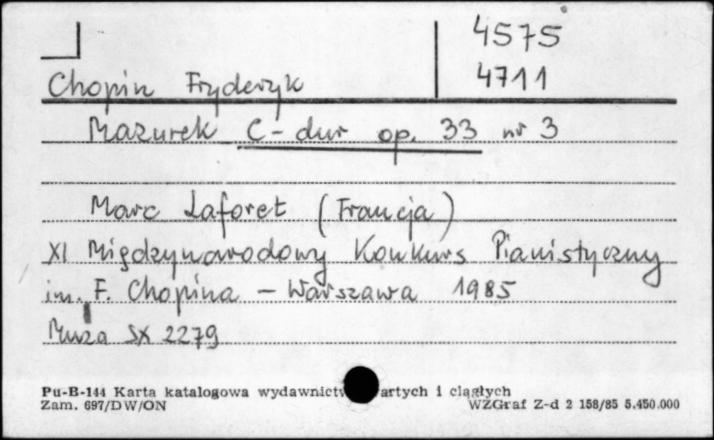 4575
Chopin Fryderyk 4711
Mazurek C-dur op. 33 nr 3
Marc Laforet (Francja)
XI Międzynarodowy Konkurs Pianistyczny
im. F. Chopina – Warszawa 1985
Muza SX 2279
Pu-B-144 Karta katalogowa wydawnictw artych i ciągłych
Zam. 697/DW/ON WZGraf Z-d 2 158/85 5.450.000